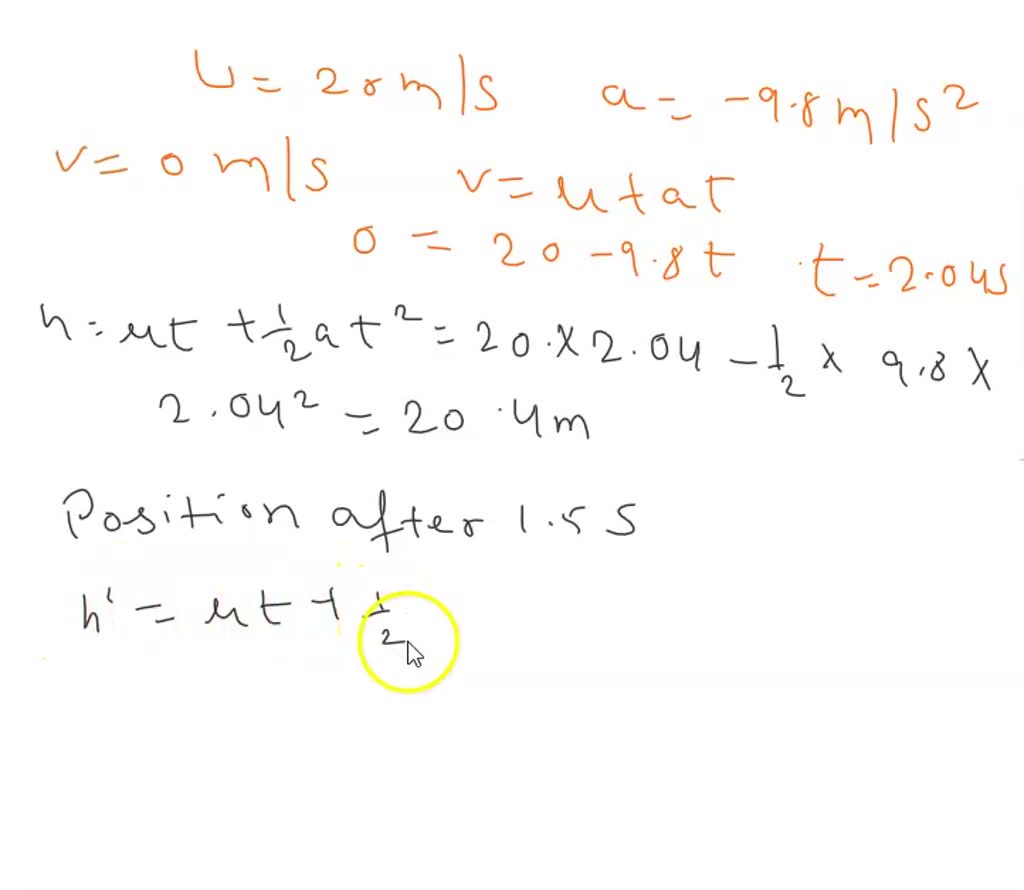 u = 20 m/s a = -9.8 m/s²
v = 0 m/s v = u + at
0 = 20 - 9.8t t = 2.04s
h = ut + 1/2 at² = 20 × 2.04 - 1/2 × 9.8 ×
2.04² = 20.4m
Position after 1.5 s
h' = ut + 1/2